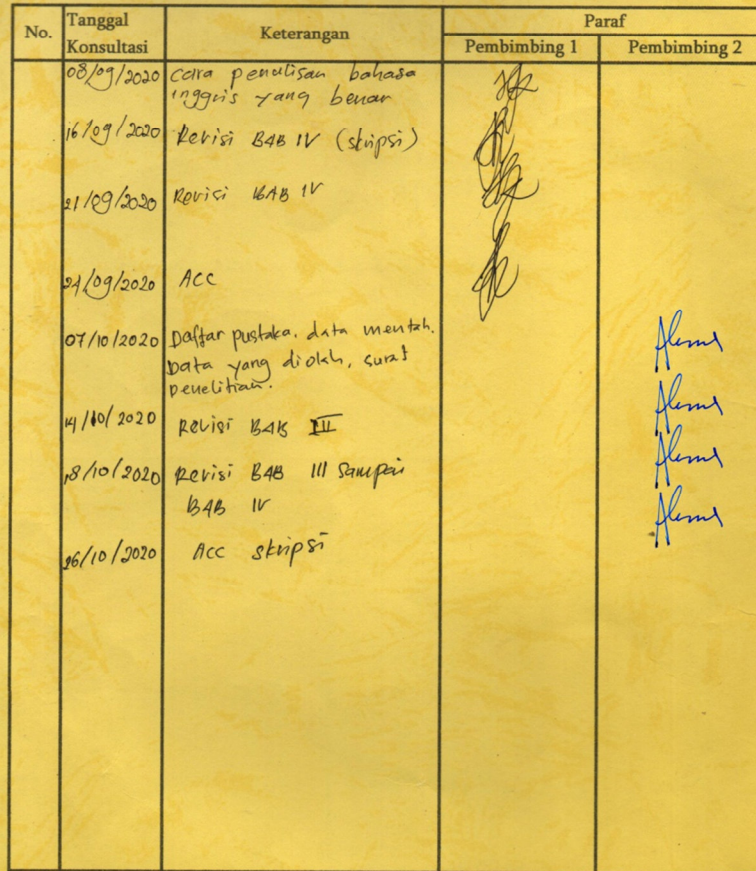 No. Tanggal Konsultasi Keterangan Paraf
Pembimbing 1 Pembimbing 2
08/09/2020 cara penulisan bahasa
inggris yang benar
16/09/2020 Revisi BAB IV (skripsi)
21/09/2020 Revisi BAB IV
24/09/2020 ACC
07/10/2020 Daftar pustaka, data mentah.
Data yang diolah, surat
penelitian.
14/10/2020 Revisi BAB III
18/10/2020 Revisi BAB III sampai
BAB IV
26/10/2020 Acc skripsi